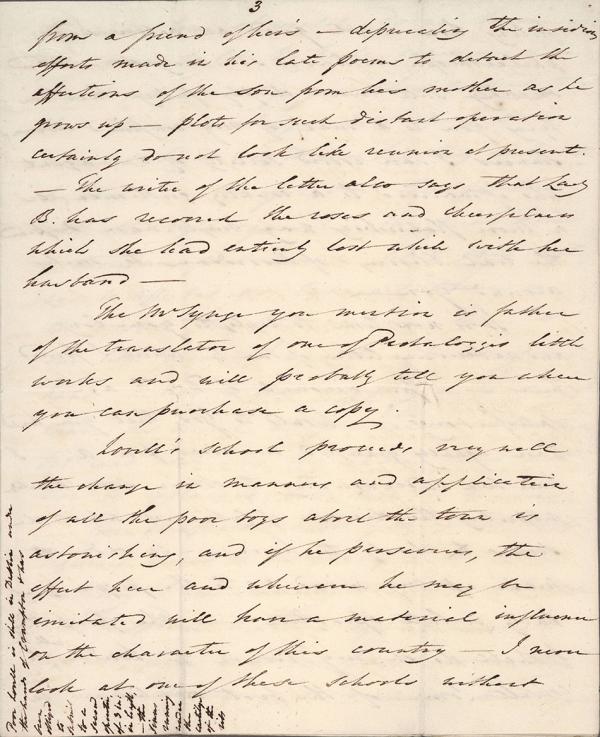 3
from a friend of hers — deprecating the insidious
efforts made in his late poems to detach the
affections of the son from his mother as he
grows up — plots for such distant operation
certainly do not look like reunion at present.
— The writer of the letter also says that Lady
B. has recovered the roses and cheerfulness
which she had entirely lost while with her
husband —
The Mr Synge you mention is father
of the translator of one of Pestalozzi's little
works and will probably tell you where
you can purchase a copy.
Lovell's school proceeds very well
the change in manners and application
of all the poor boys about the town is
astonishing, and if he perseveres, the
effect here and wherever he may be
imitated will have a material influence
on the character of this country — I never
look at one of these schools without
Poor Lovell is still in Dublin under
the hands of Crampton & has
been
obliged
to
submit
to a
second
operation
of 3 in
in length
— the
along
under
the
of the
ribs